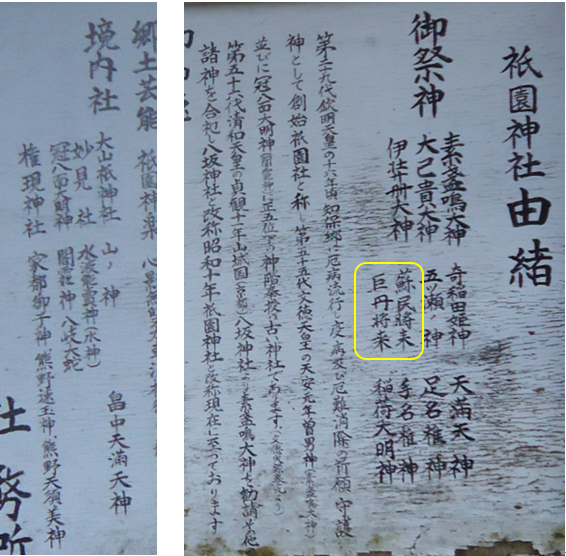 祇園神社由緒
御祭神
素盞嗚大神 奇稲田姫神 天満天神
大己貴大神 五瀬神 足名椎神
伊弉册大神 蘇民将来 手名椎神
巨丹将来 稲荷大明神
第二十九代欽明天皇の十六年頃知保郷に厄病流行し疫病及び厄難消除の祈願守護
神として創始祇園社と称し第五十五代文徳天皇の天安元年曽男神
並びに冠八面大明神に正五位下の神階奉授の古い神社であります
第五十六代清和天皇の貞観十年山城国八坂神社より素盞嗚大神を勧請し他
諸神を合祀八坂神社と改称昭和十年祇園神社と改称現在に至っております
郷土芸能 祇園神楽
境内社
大山祇神社 山ノ神 畠中天満天神
妙見社 水波能売神(水神)
冠八面大明神 闇龗神 八岐大蛇
権現神社 家都御子神 熊野速玉神 熊野夫須美神
社務所